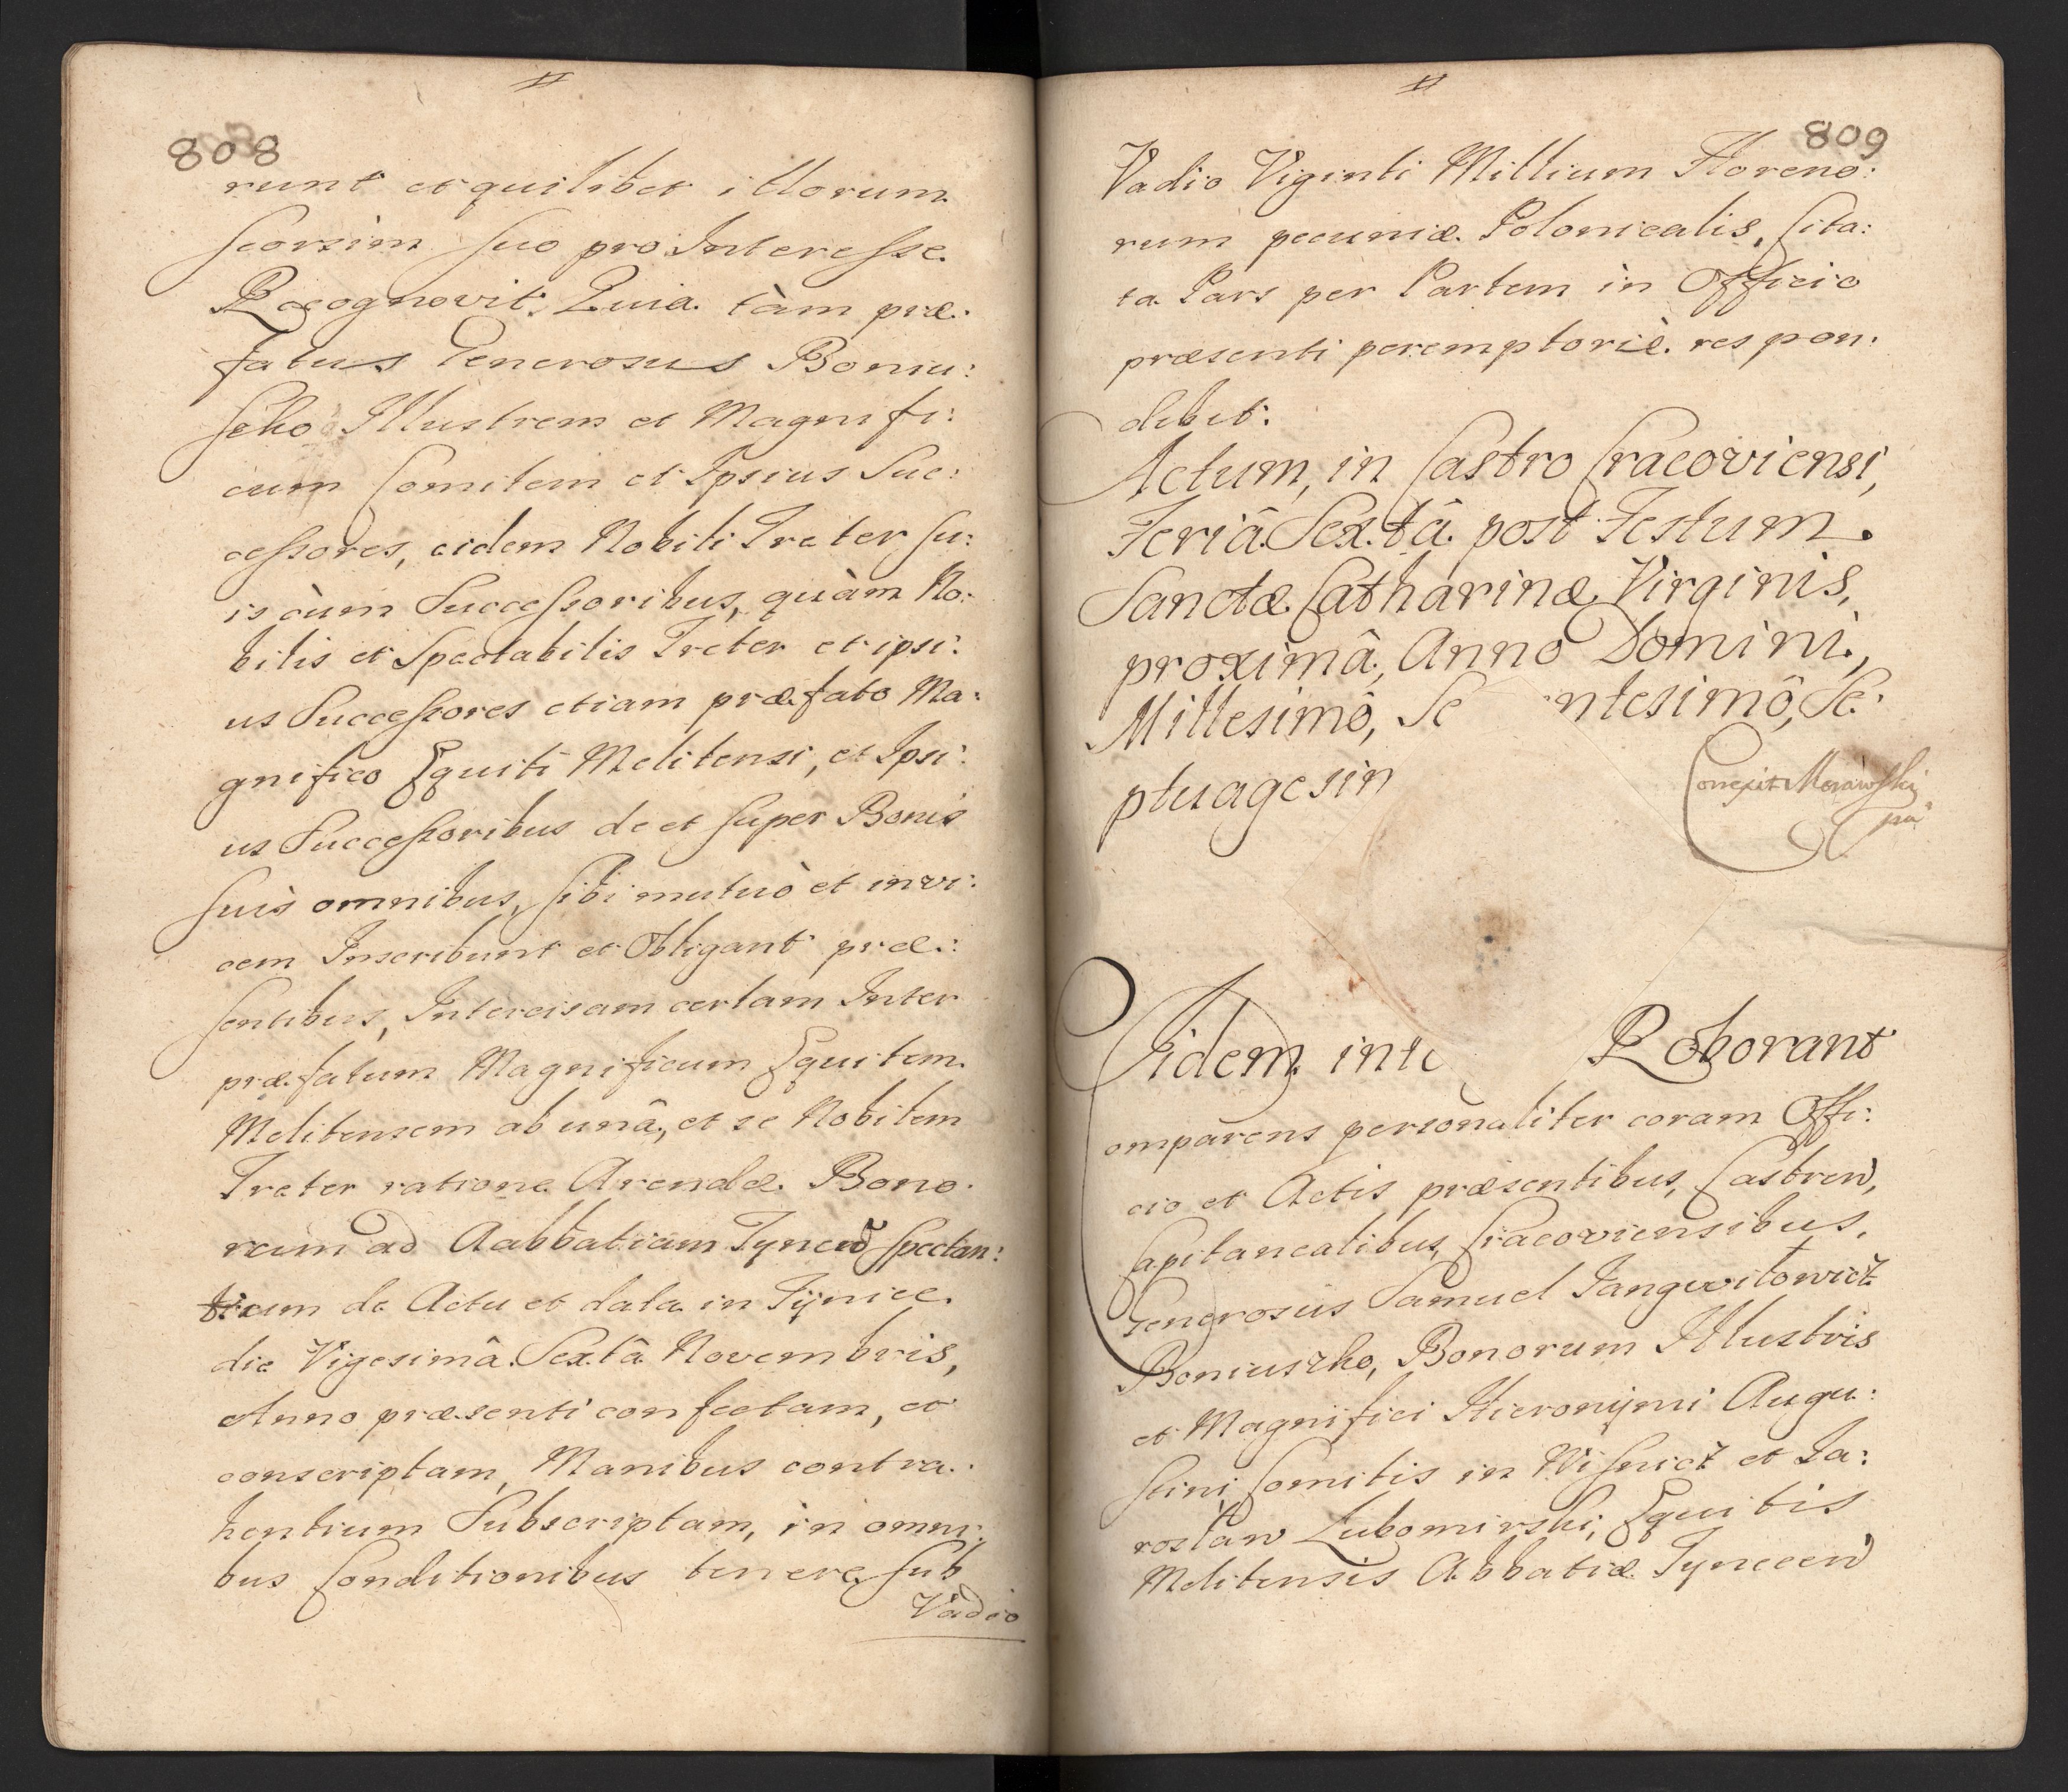 808
runt et quilibet illorum
seorsim suo pro Interesse
Recognovit. Quia tàm præ.
fatus Generosus Boniu:
scho Illustrem et Magnifi:
cum Comitem et Ipsius Suc:
cessores, eidem Nobili Treter su:
is cùm Successoribus, quàm No:
bilis et Spectabilis Treter et ipsi:
us Successores etiam præfato Ma:
gnifico Equiti Melitensi, et Ipsi:
us Successoribus de et super Bonis
suis omnibus, sibi mutuò et invi:
cem Inscribunt et Obligant præ:
sentibus, Intercisam certam Inter
præfatum Magnificum Equitem
Melitensem ab unâ, et se Nobilem
Treter ratione Arendæ Bono.
rum ad Aabbatiam Tynecen spectan:
tium de Actu et data in Tynice
die Vigesimâ Sextâ Novembris,
Anno præsenti confectam, et
conscriptam, Manibus contra:
hentium Subscriptam, in omni:
bus Conditionibus tenere, sub
Vadio
809
Vadio Viginti Millium Floreno:
rum pecuniæ Polonicalis, Cita:
ta Pars per Partem in Officio
præsenti peremptoriè respon:
debit.
Actum, in Castro Cracoviensi,
Feriâ Sextâ post Festum
Sanctæ Catharinæ Virginis,
proximâ, Anno Domini,
Millesimô, Se ntesimô, Se:
ptuagesim
Correxit Morawski
mp
Eidem inte Roborant
omparens personaliter coram Offi:
cio et Actis præsentibus, Castren,
Capitanealibus, Cracoviensibus,
Generosus Samuel Jangwitowicz
Boniuszko, Bonorum Illustris
et Magnifici Hieronÿmi Augu:
stini Comitis in Wisnicz et Ja:
rosław Lubomirski, Equitis
Melitensis Abbatiæ Tynecen